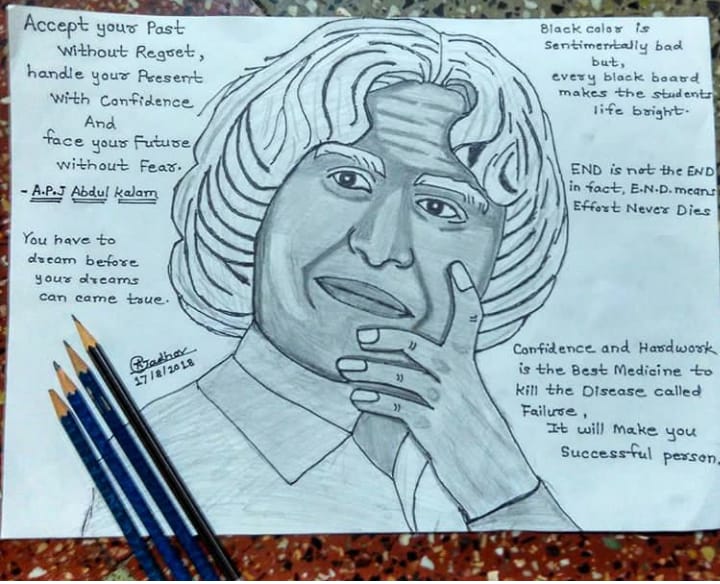 Accept your Past
without Regret,
handle your Present
with Confidence
And
face your Future
without Fear.
- A.P.J Abdul Kalam
You have to
dream before
your dreams
can came true.
Jadhav
17/8/2018
Black color is
sentimentally bad
but,
every black board
makes the students
life bright.
END is not the END
in fact, E.N.D. means
Effort Never Dies
Confidence and Hardwork
is the Best Medicine to
kill the Disease called
Failure,
It will Make you
Successful person.